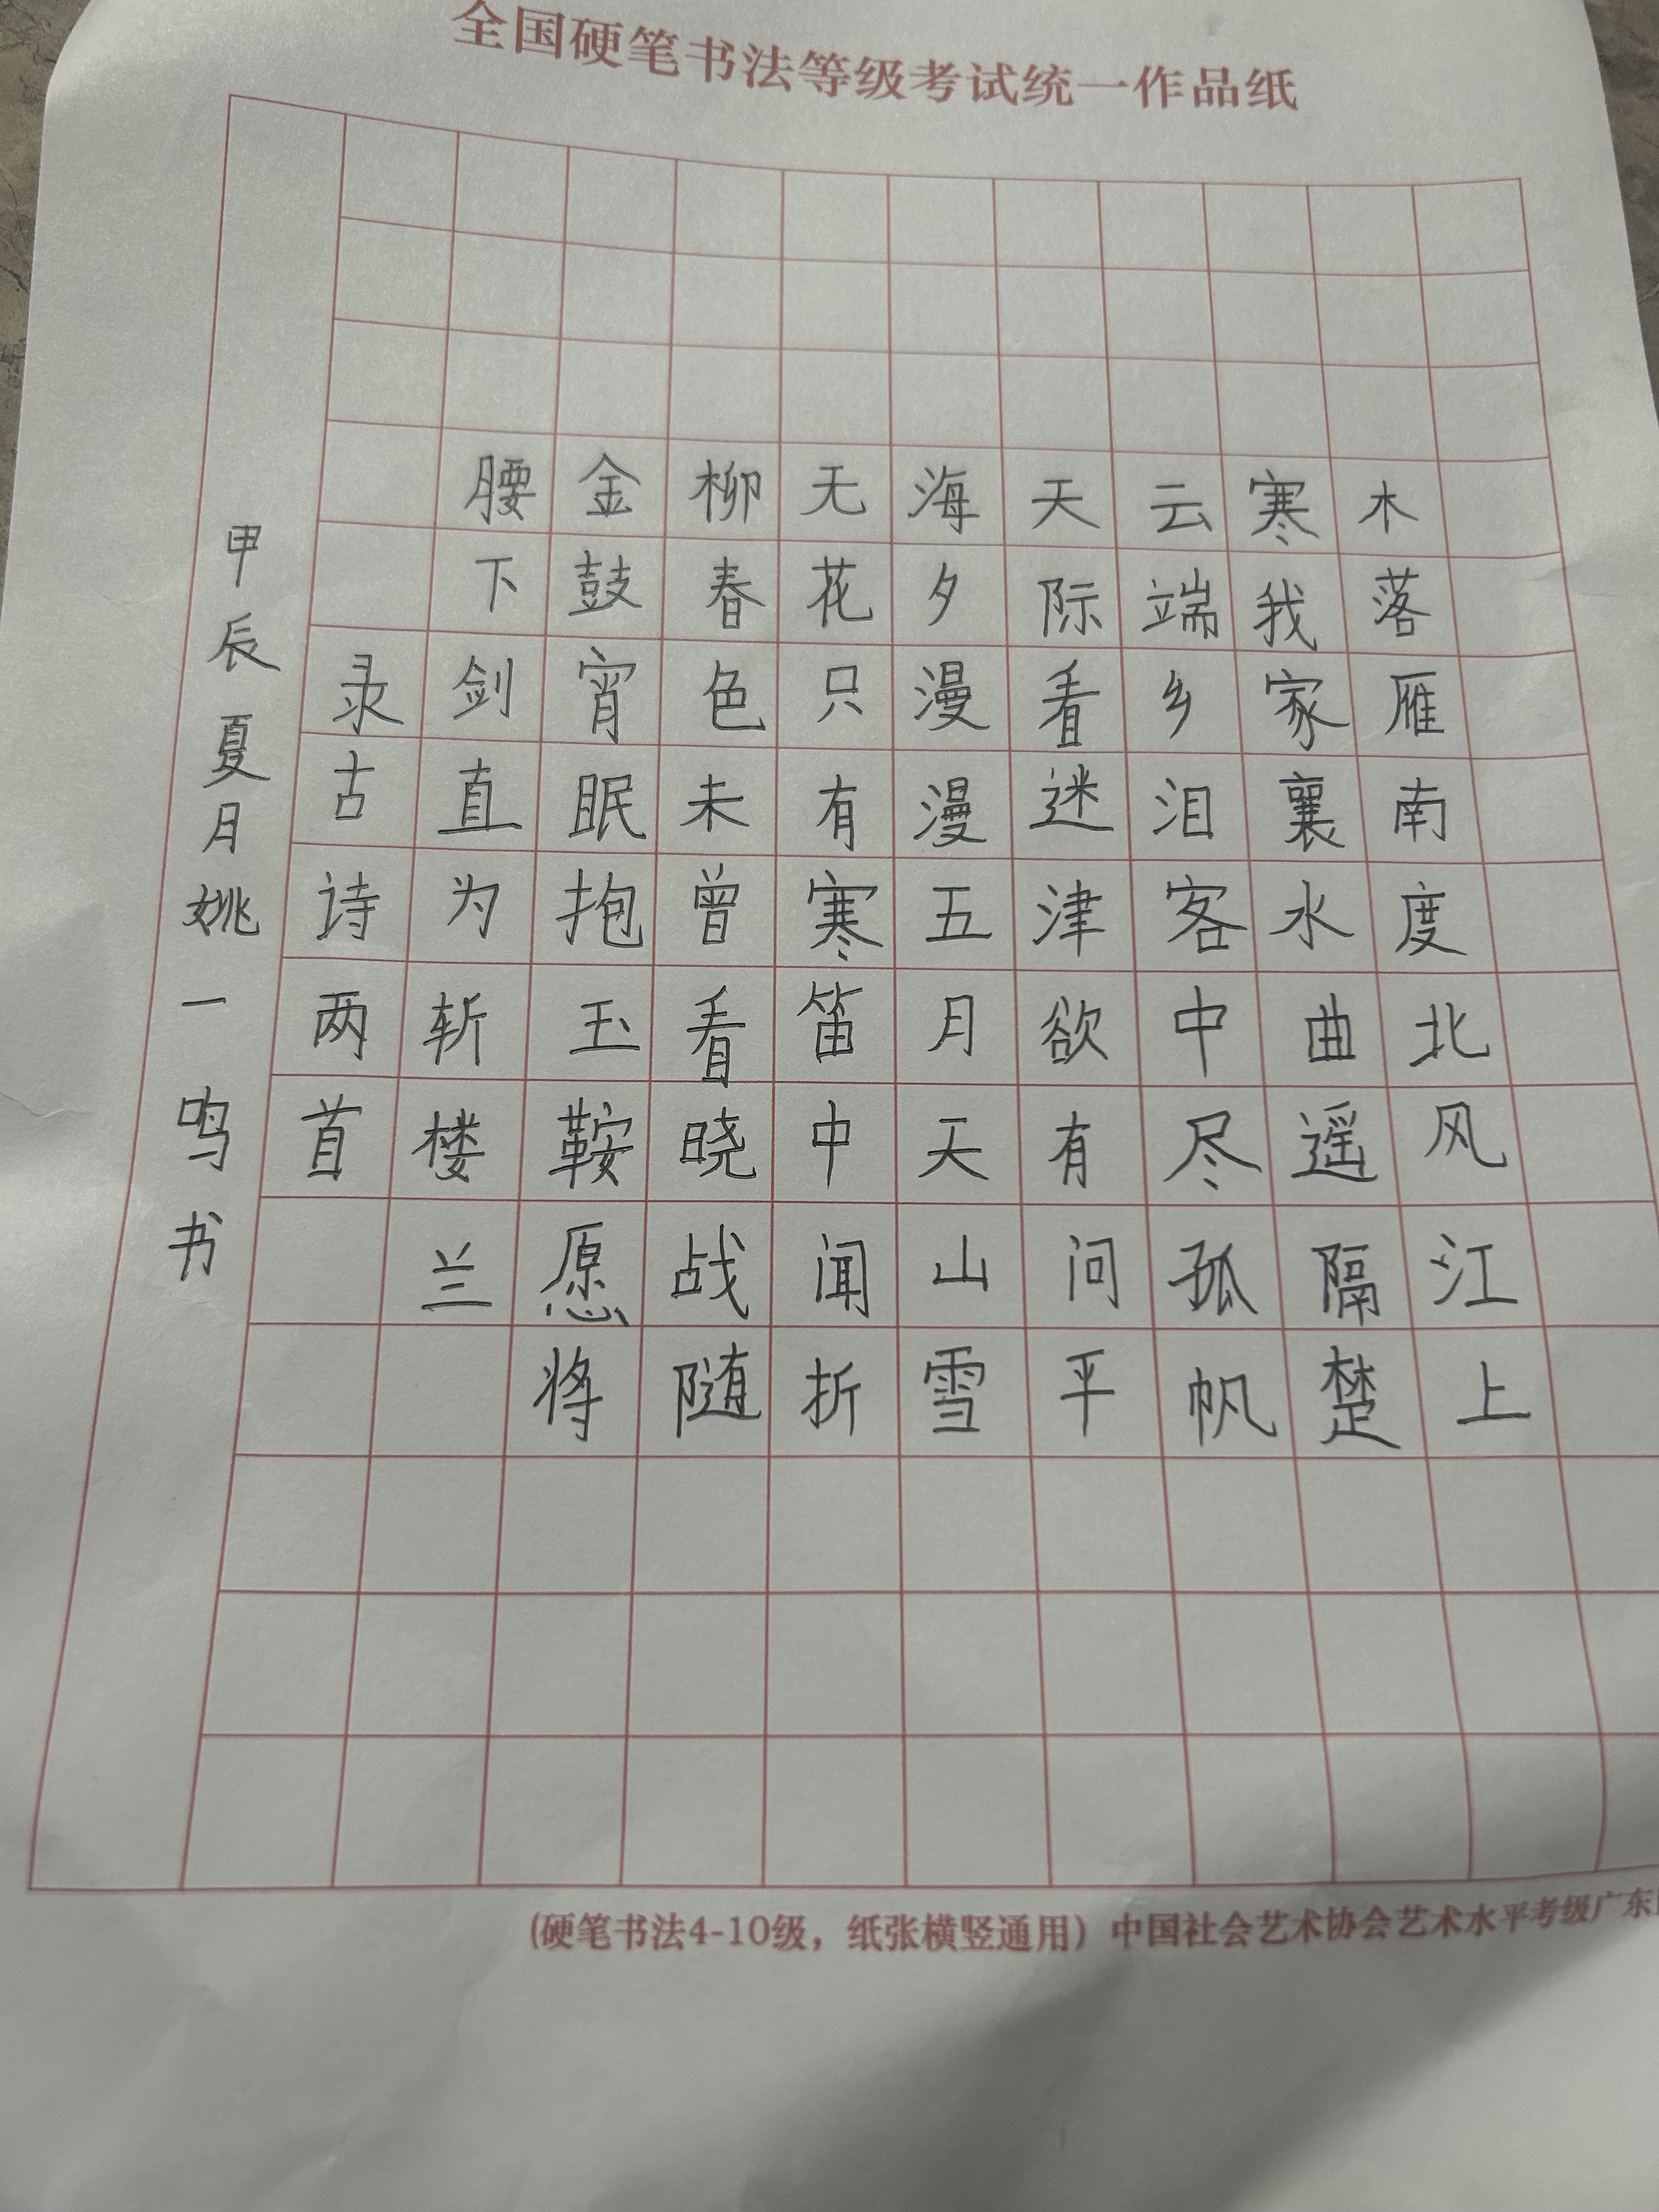 全国硬笔书法等级考试统一作品纸
木落雁南度北风江上
寒我家襄水曲遥隔楚
云端乡泪客中尽孤帆
天际看迷津欲有问平
海夕漫漫五月天山雪
无花只有寒笛中闻折
柳春色未曾看晓战随
金鼓宵眠抱玉鞍愿将
腰下剑直为斩楼兰
录古诗两首
甲辰夏月姚一鸣书
(硬笔书法4-10级，纸张横竖通用) 中国社会艺术协会艺术水平考级广东